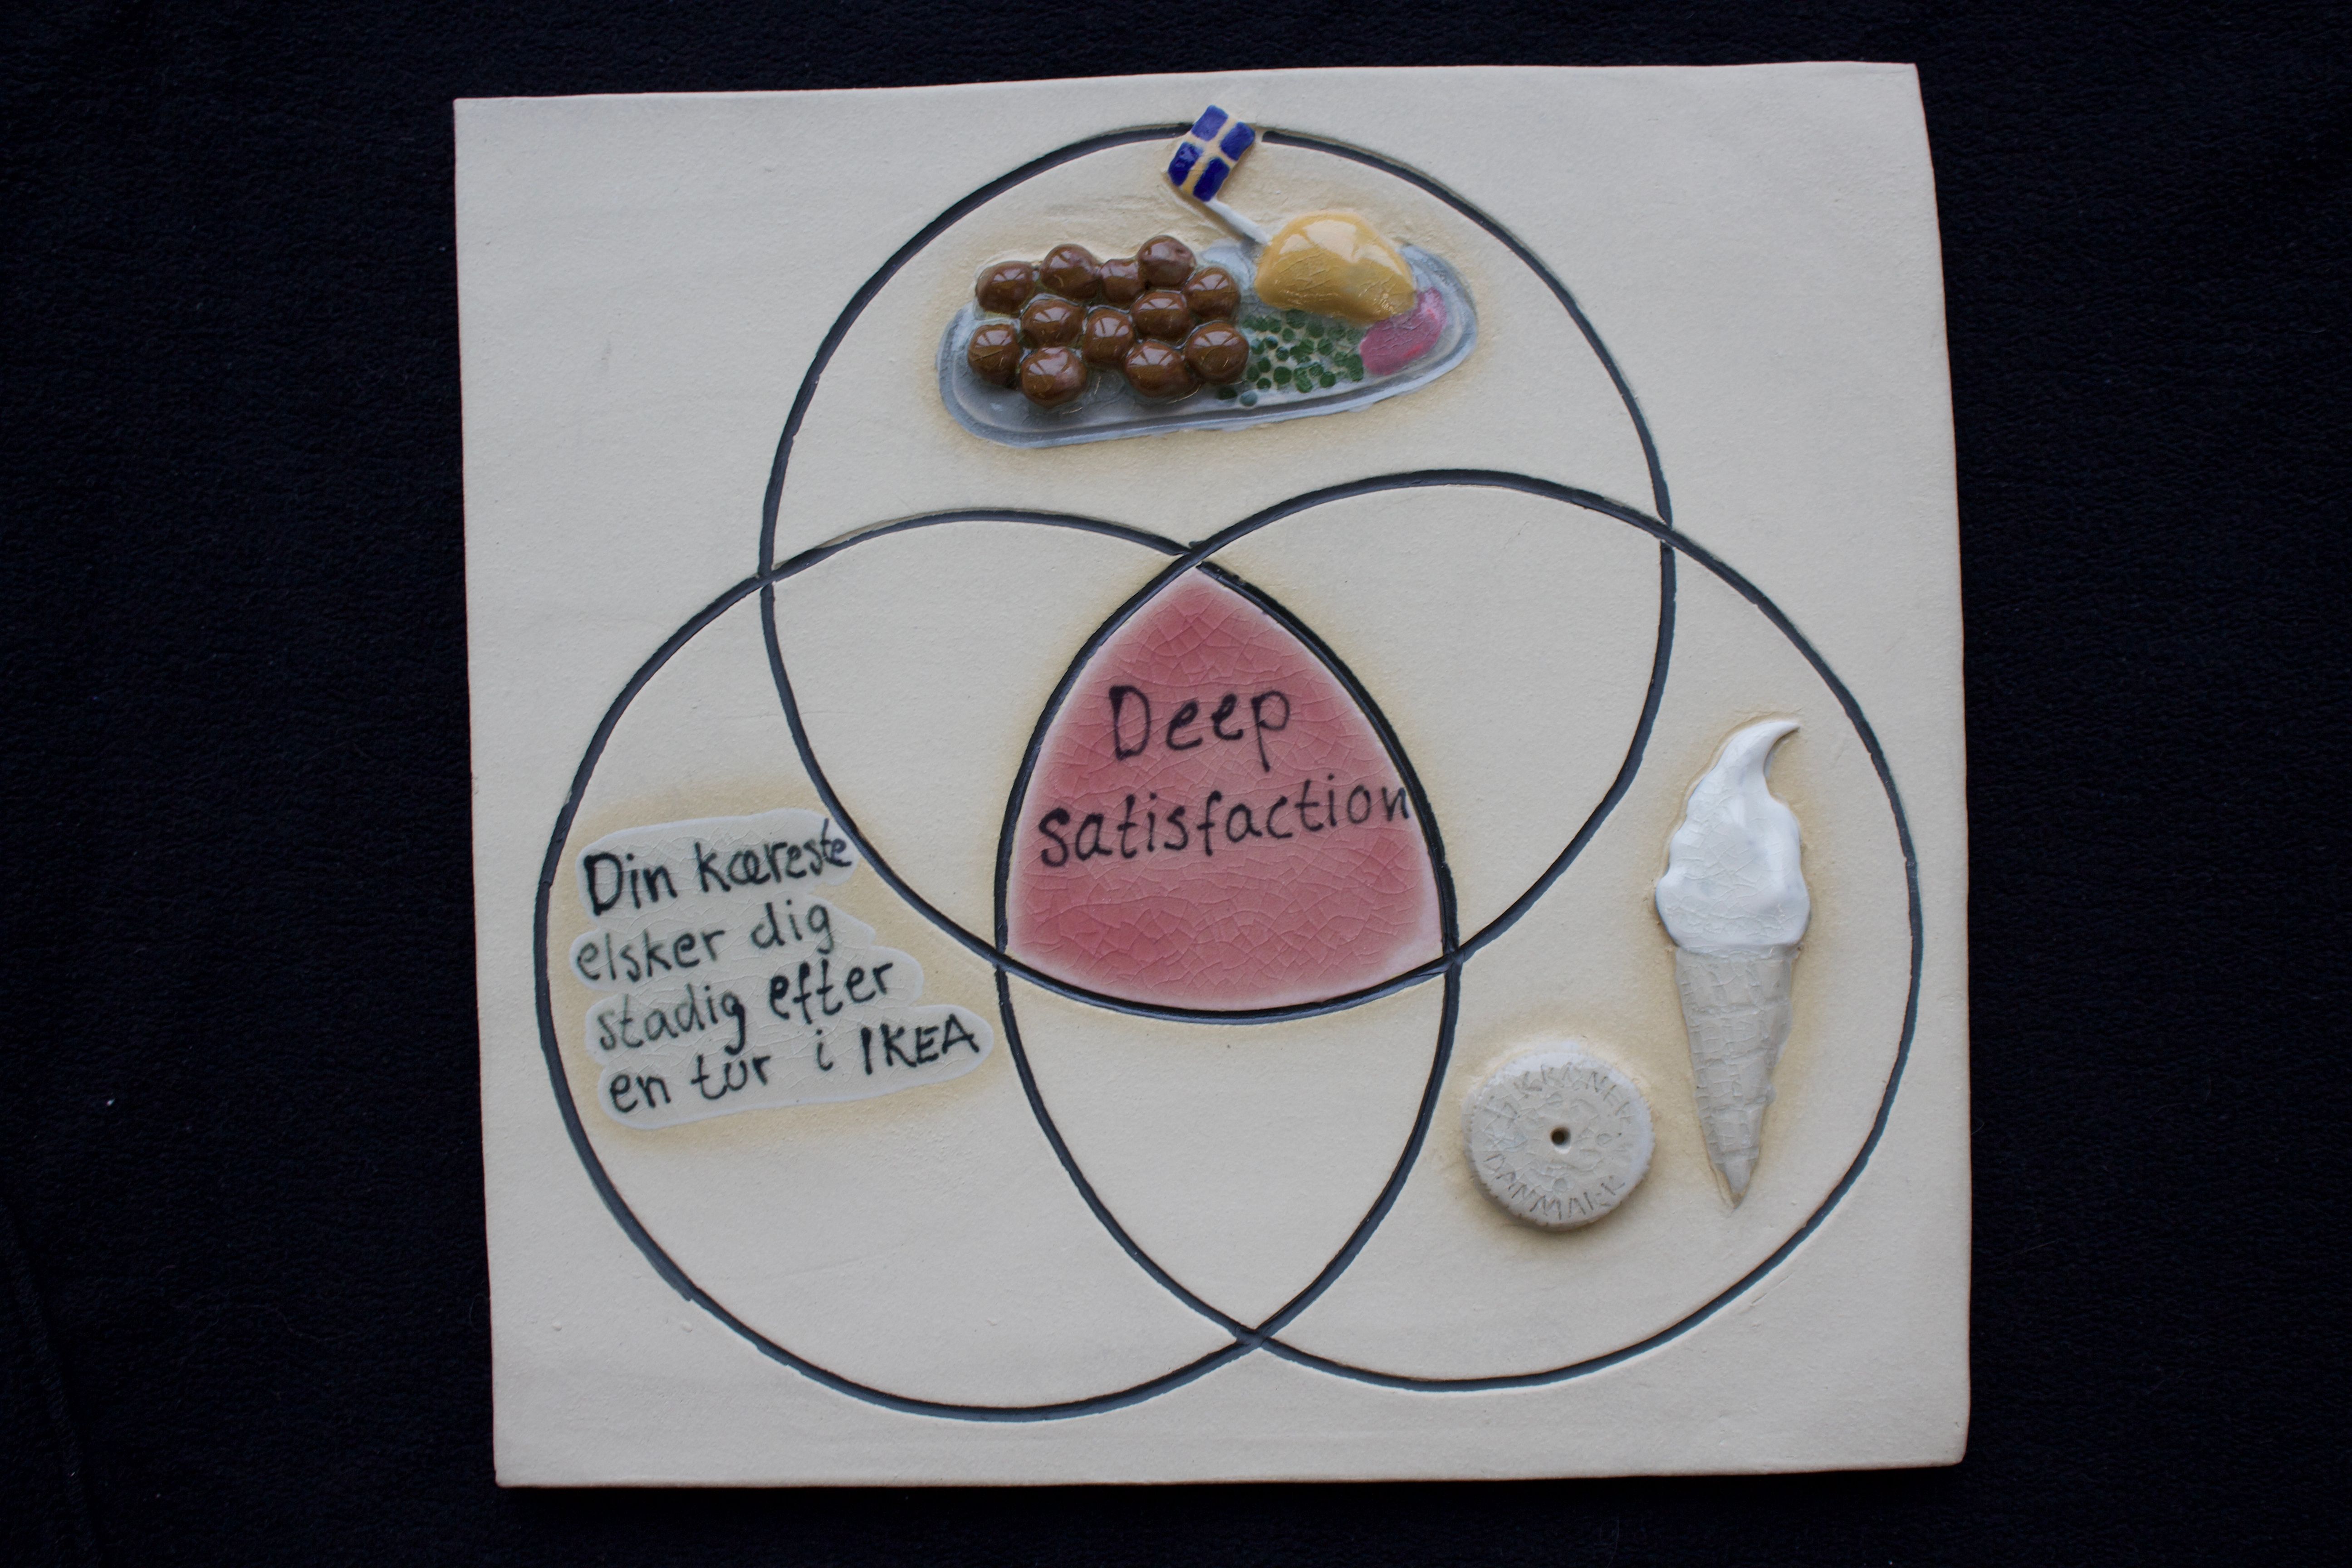 Deep
satisfaction
Din kæreste
elsker dig
stadig efter
en tur i IKEA
KRONER
DANMARK